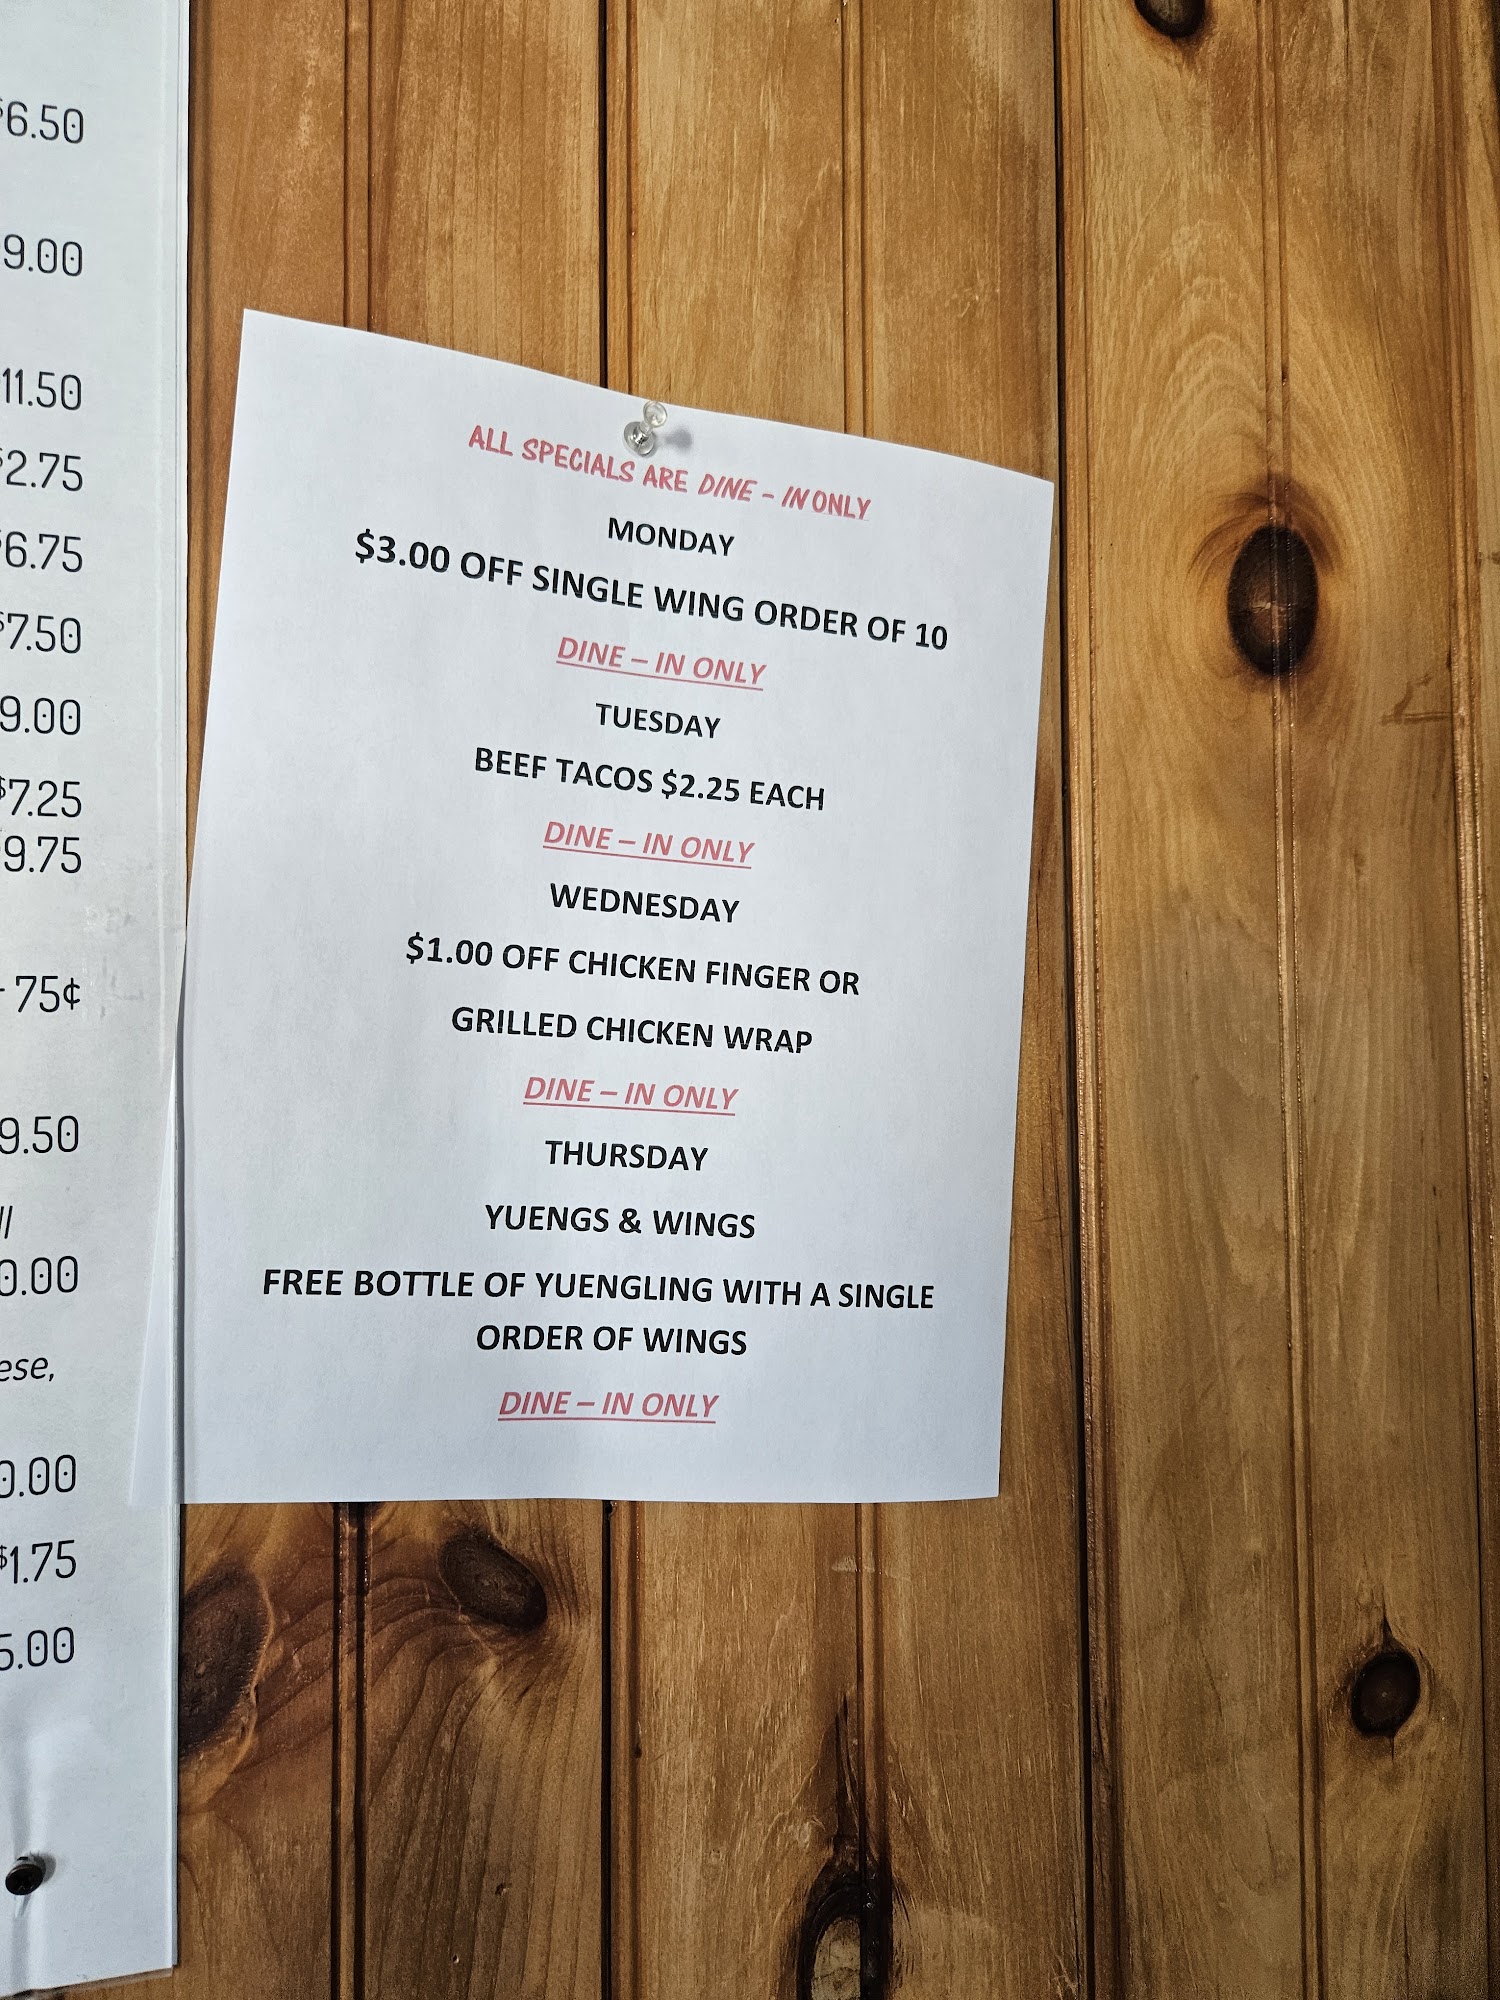 $6.50
9.00
11.50
$2.75
6.75
$7.50
9.00
$7.25
9.75
75¢
9.50
0.00
0.00
$1.75
5.00
ALL SPECIALS ARE DINE – IN ONLY
MONDAY
$3.00 OFF SINGLE WING ORDER OF 10
DINE – IN ONLY
TUESDAY
BEEF TACOS $2.25 EACH
DINE – IN ONLY
WEDNESDAY
$1.00 OFF CHICKEN FINGER OR
GRILLED CHICKEN WRAP
DINE – IN ONLY
THURSDAY
YUENGS & WINGS
FREE BOTTLE OF YUENGLING WITH A SINGLE
ORDER OF WINGS
DINE – IN ONLY